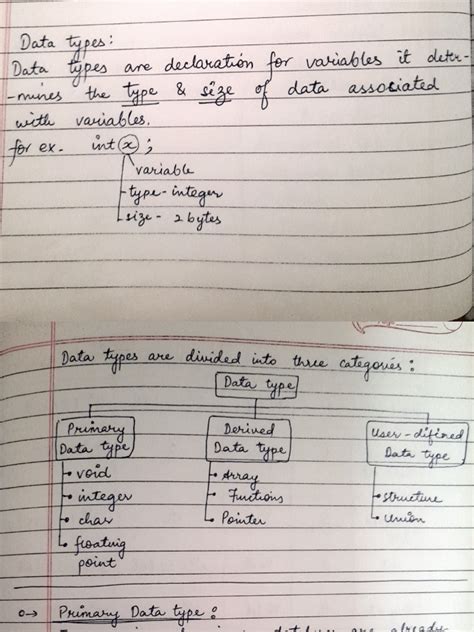 Data types:
Data types are declaration for variables it deter-
-mines the type & size of data associated
with variables.
for ex. int x ;
variable
type - integer
size - 2 bytes
Data types are divided into three categories:
Data type
Primary Data type
• void
• integer
• char
• floating point
Derived Data type
• Array
• Functions
• Pointer
User-difined Data type
• structure
• union
Primary Data type:
are already